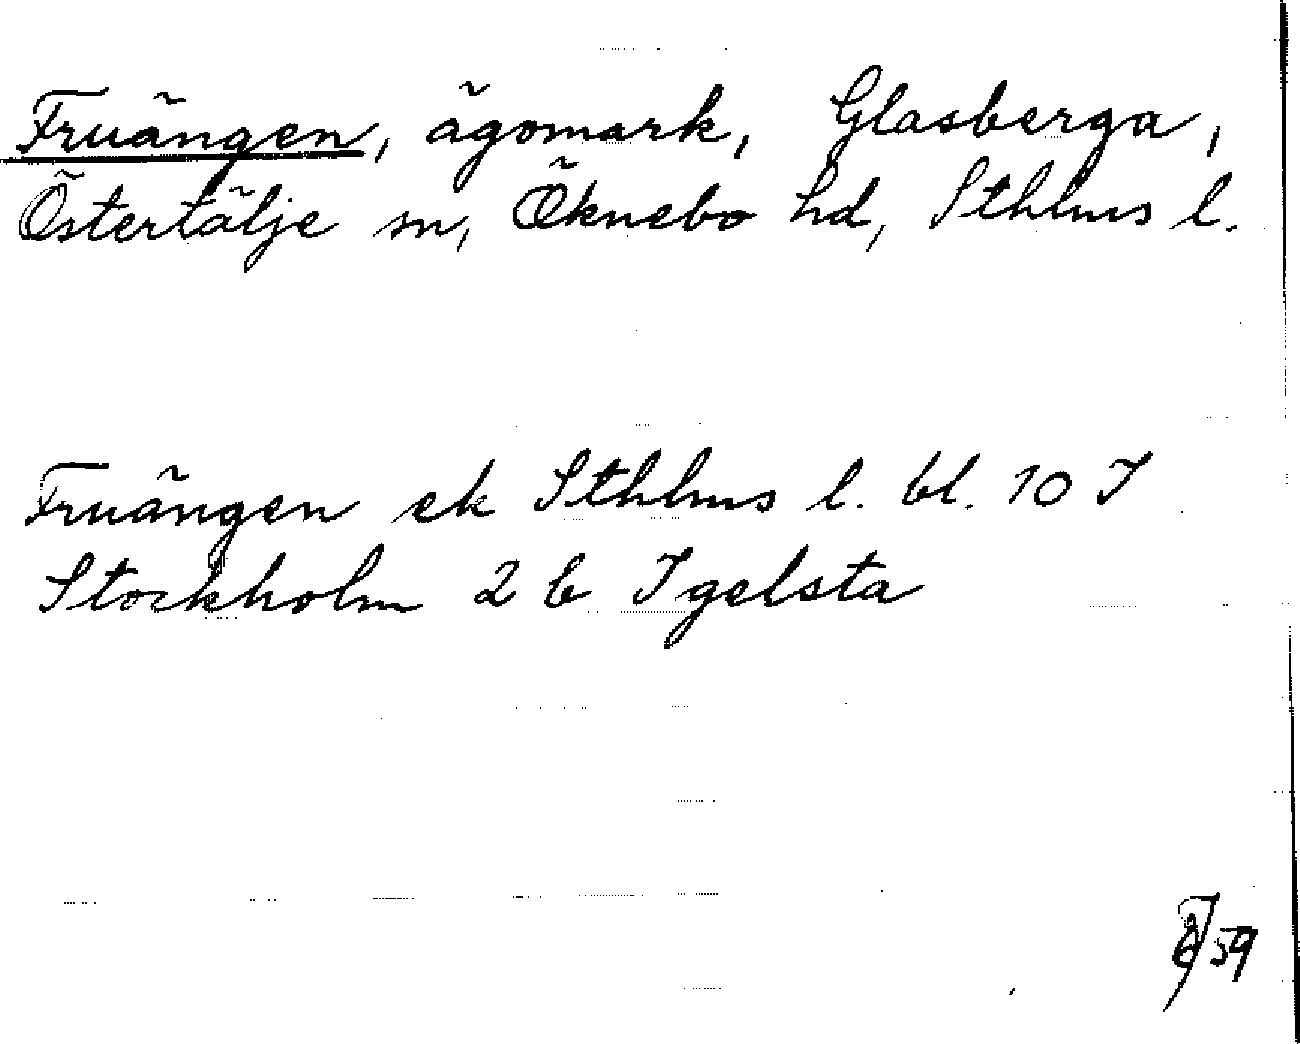 Fruängen, ägomark, Glasberga,
Östertälje sn, Öknebo hd, Sthlms l.
Fruängen ek Sthlms l. bl. 10 I
Stockholm 2 b Igelsta
59